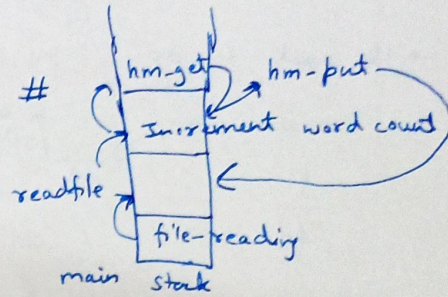 hm-get
# hm-put
Increment word count
readfile
file-reading
main stack